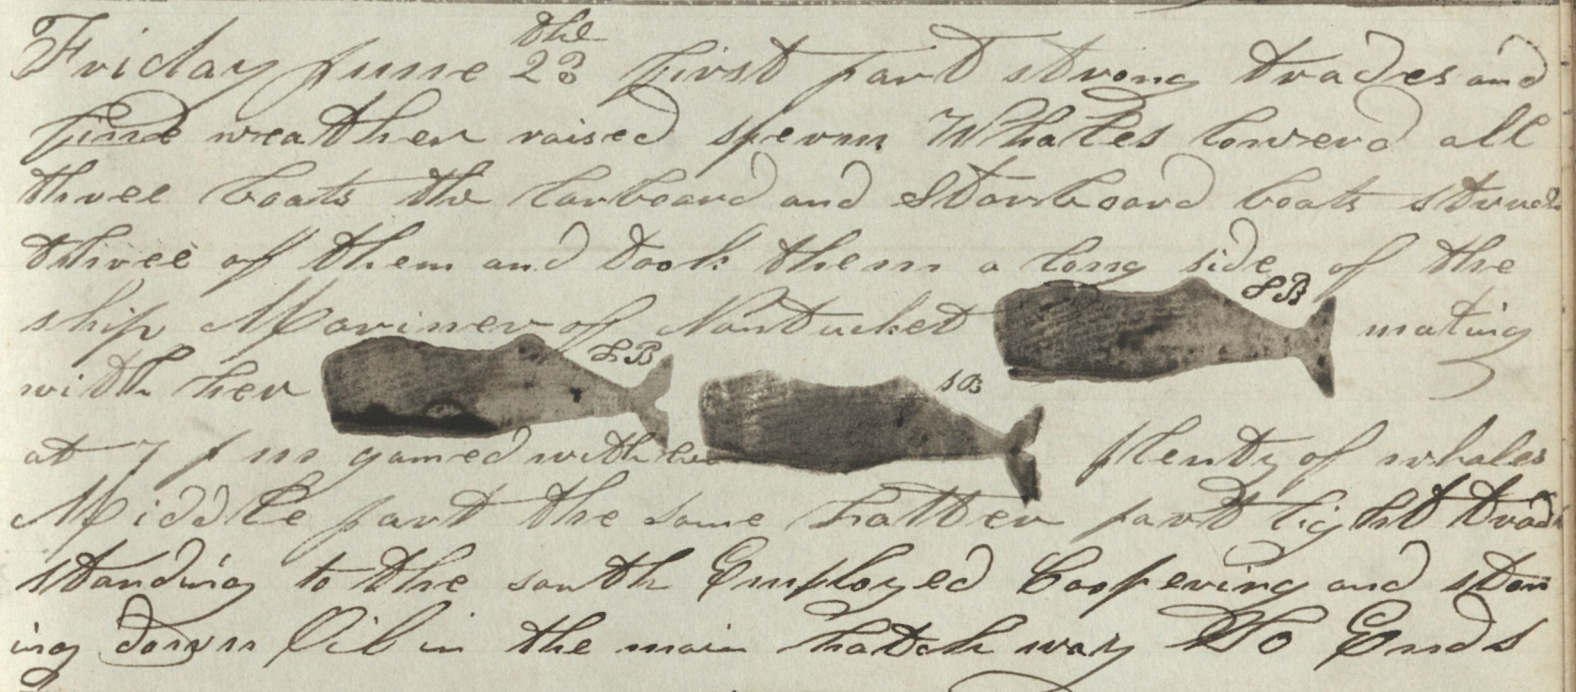 Friday June 23 the first part strong trades and
fine weather raised sperm Whales lowerd all
three boats the larboard and Starboard boats struck
three of them and took them a long side of the
ship Mariner of Nantucket SB mating
with her SB SB
at 7 p m gamed with her plenty of whales
Middle part the same latter part light trades
standing to the south Employed Coopering and stow
ing down Oil in the main hatch way So Ends